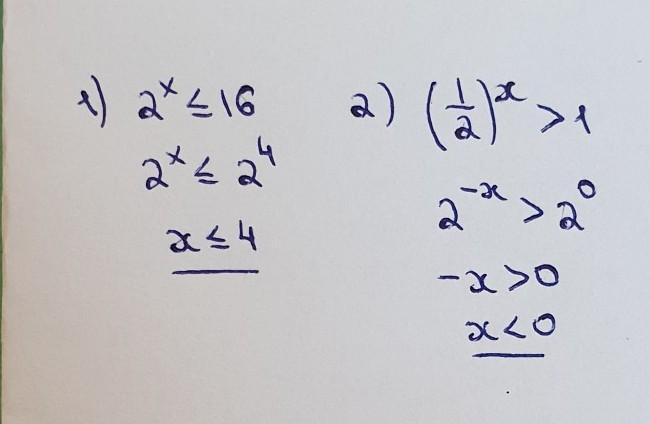 1) 2ˣ ≤ 16
2ˣ ≤ 2⁴
x ≤ 4
2) (1/2)ˣ > 1
2⁻ˣ > 2⁰
-x > 0
x < 0